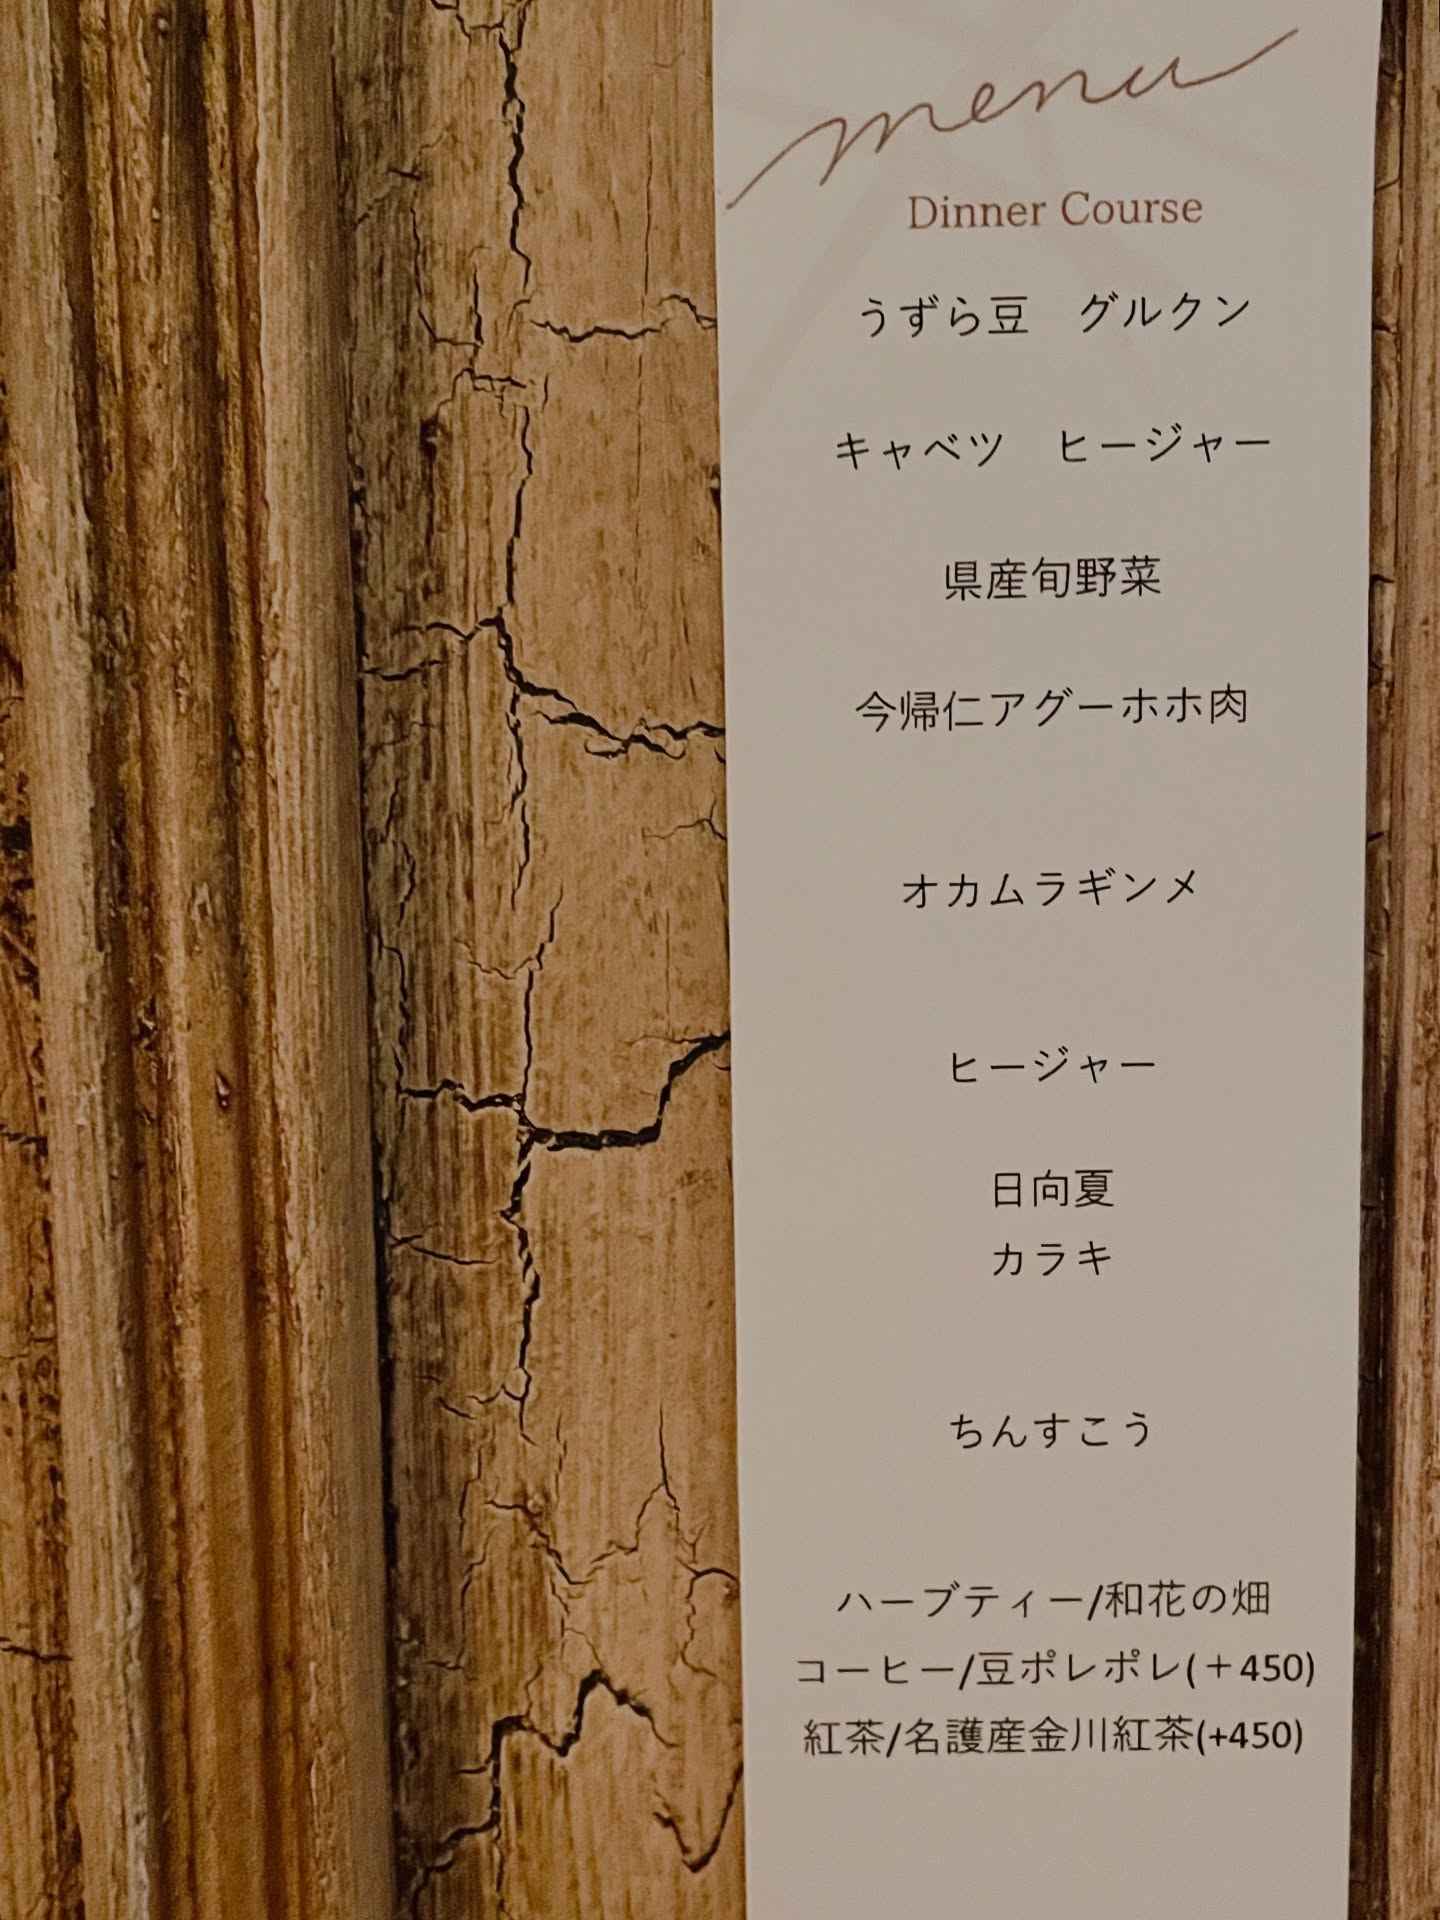 menu
Dinner Course
うずら豆　グルクン
キャベツ　ヒージャー
県産旬野菜
今帰仁アグーホホ肉
オカムラギンメ
ヒージャー
日向夏
カラキ
ちんすこう
ハーブティー/和花の畑
コーヒー/豆ポレポレ(＋450)
紅茶/名護産金川紅茶(+450)